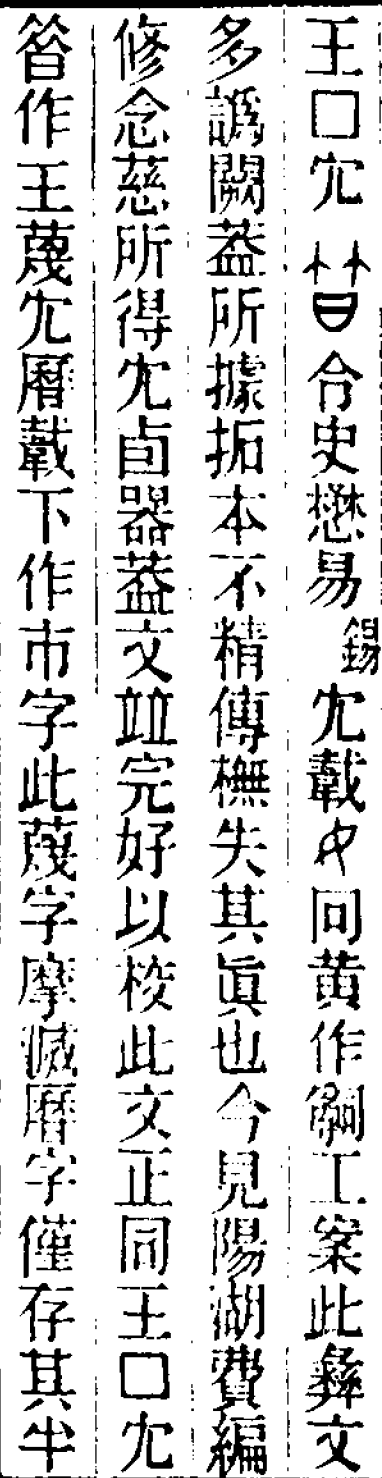 王□冘𦥑合史懋易錫冘䵼同黄作嗣工案此彝文
多譌闕葢所據拓本不精傳橅失其眞也今見陽湖費編
修念慈所得冘卣器葢文竝完好以校此文正同王□冘
簪作王蔑冘曆䵼下作市字此蔑字摩滅曆字僅存其半